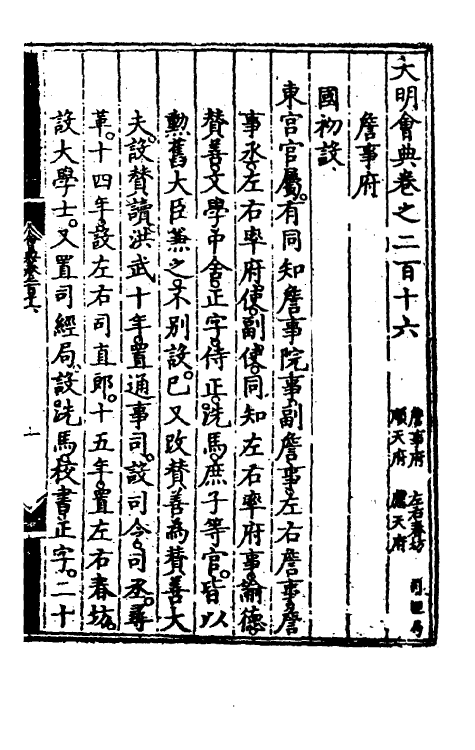 大明會典卷之二百十六
詹事府 左右春坊 司經局
順天府 應天府
詹事府
國初設
東宮官屬。有同知詹事院事。副詹事。左右詹事。詹
事丞。左右率府使。副使。同知左右率府事。諭德。
贊善。文學。中舍。正字。侍正。洗馬。庶子等官。皆以
勳舊大臣兼之。不別設。已又改贊善為贊善大
夫。設贊讀。洪武十年。置通事司。設司令。司丞。尋
革。十四年。設左右司直郎。十五年。置左右春坊。
設大學士。又置司經局。設洗馬。校書。正字。二十
會典卷二百十六
一